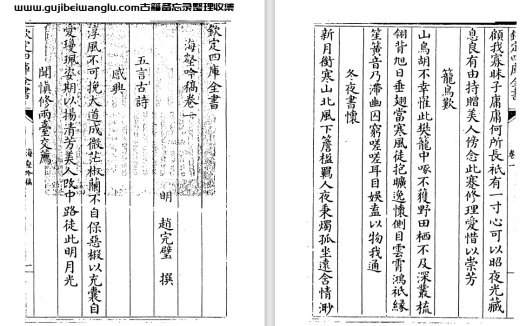 www.gujibeiwanglu.com古籍备忘录整理收集
欽定四庫全書
海壑吟稿卷一
明 趙完璧 撰
五言古詩
感興
淳風不可挽大道成微茫椒蘭不自保惡椴以充囊自
愛瓊珮姿期以揚清芳美人改中路徒此明月光
聞慎修兩臺交薦
欽定四庫全書
海壑吟稿
一
欽定四庫全書
卷一
顧我寡昧子庸庸何所長祇有一寸心可以昭夜光藏
息良有由持贈美人傍念此蹇修理愛惜以崇芳
籠鳥歎
山鳥胡不幸罹此樊籠中啄不獲野田栖不及深叢梳
翎背旭日垂翅當寒風徒把曠逸懷側目雲霄鴻祇緣
笙簧音乃滯幽囚窮嗟嗟耳目娛盍以物我通
冬夜書懷
新月銜寒山北風下簷楹羈人夜秉燭孤坐遠含情渺